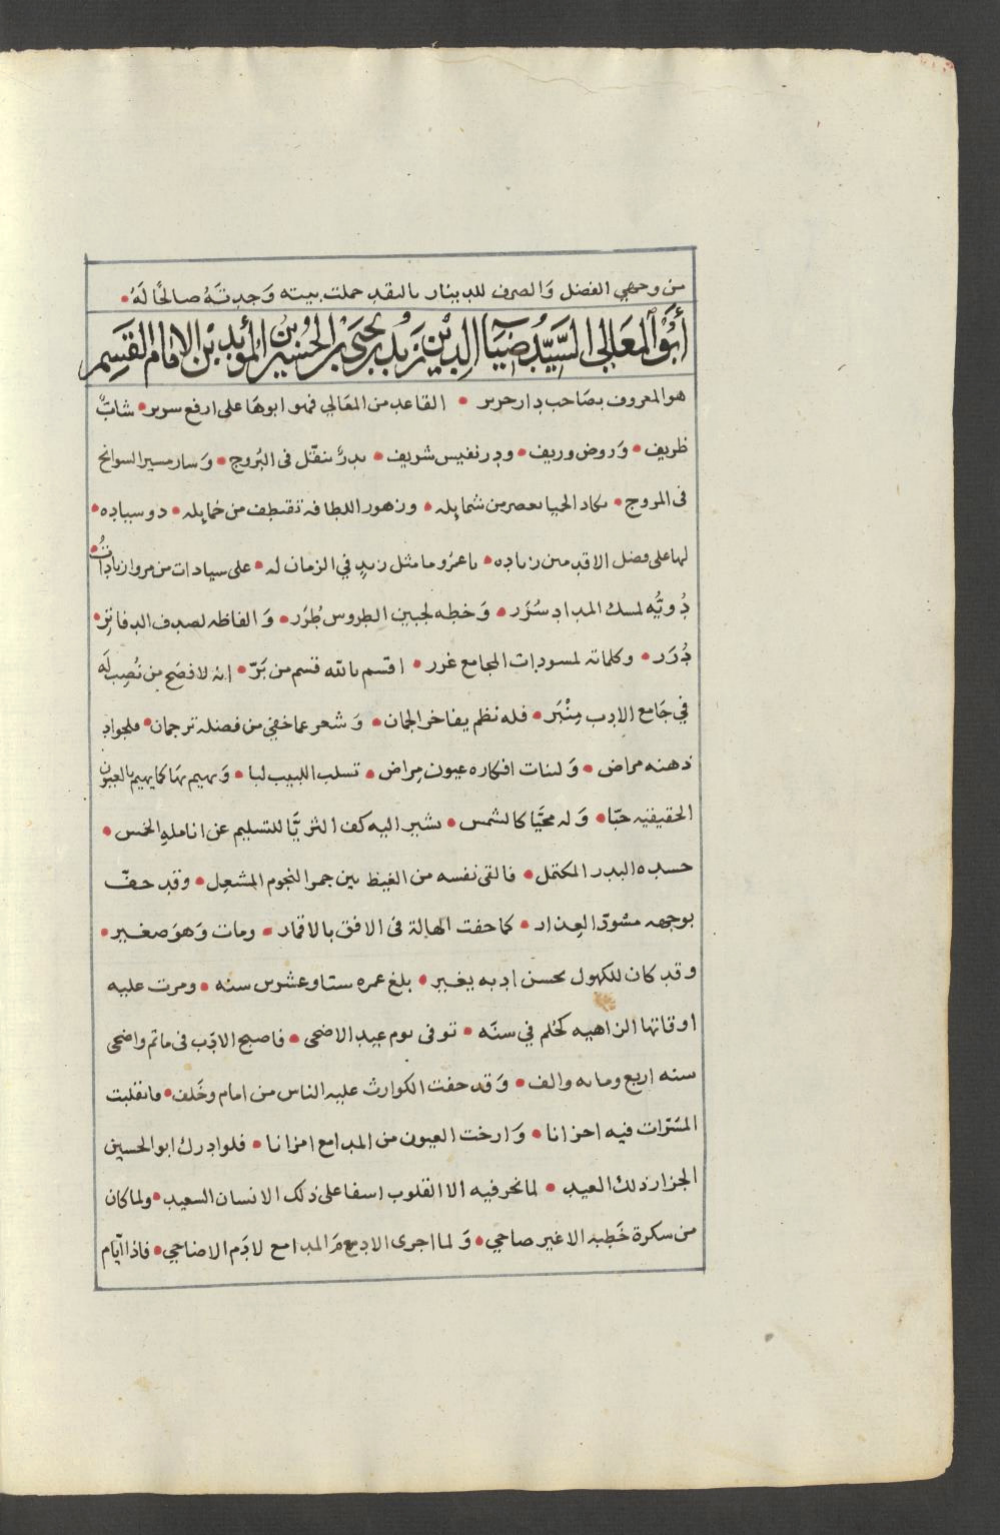 من وجهي الفضل وَالصرف للدينار بالنقد حملت بيته وَجدتهُ صالحًا لهُ •
أبوُ المعَالي السَّيّد ضيَآ الدِين زيُد بن يحيَى بن الحسُين بن المؤيد بن الإمام القسِم
هو المعروف بصَاحب دار حرير • القاعد من المعَالي فهو ابوهَا على ارفع سرير • شابٌّ
ظريف • وَروض وريف • ودر نفيس شريف • بدرٌ تنقّل فى البُروج • وَسار مسير السوانح
فى المروج • يكاد الحيا يعصر من شمايله • وزهور اللطافه تقتطف من خمايله • ذو سياده •
لها على فضل الاقدمين زياده • ما عمرُو ما مثل زيدٍ في الزمان له • على سيادات من مروا زياداتُ •
دُويُّه لمسك المداد سُرَر • وَخطه لجبين الطروس طُرَر • وَالفاظه لصدف الدفاتر •
دُرَر • وكلماته لمسودات المجامع غرر • اقسم بالله قسم من بَرّ • انه لافصَح من نُصِب لَه
في جَامع الادب مِنْبَر • فله نظم يفاخر الجمان • وَشعر عما خفي من فضله ترجمان • فلجواد
ذهنه مراض • وَلبنات افكاره عيون مِراض • تسلب اللبيب لبا • وَيهيم بهَا كما يهيم بالعيون
الحقيقيّه حبّا • وَله محيَّا كالشمس • يشير اليه كف الثريَّا للتسليم عن انامله الخمس •
حسده البدر المكتمل • فالقى نفسه من الغيظ بين جمر النجوم المشعل • وقد حفّ
بوجهه مشوق العِذار • كما حفت الهالة فى الافق بالاقمار • ومات وَهوَ صغير •
وقد كان للكهول بحسن ادبه يغير • بلغ عمره ستا وعشرين سنه • ومرت عليه
اوقاتها الزاهيه كحُلم في سنَه • توفى يوم عيد الاضحى • فاصبح الادَب فى ماتم واضحى
سنه اربع ومايه والف • وَقد حفت الكوارث عليه الناس من امام وخَلف • فانقلبت
المسَرّات فيه احزانا • وَارخت العيون من المدامع امزانا • فلو ادرك ابو الحسين
الجزار ذلك العيد • لما نحر فيه الا القلوب اسفا على ذلك الانسان السعيد • ولما كان
من سكرة خَطبه الا غير صاحي • وَلما اجرى الا دمع المدامع لا دَم الاضاحي • فاذا ايّام